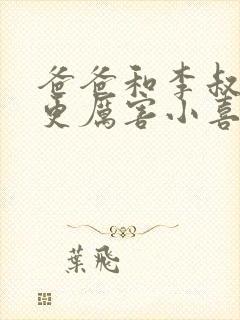 爸爸和李叔
更厲害小喜
葉飛